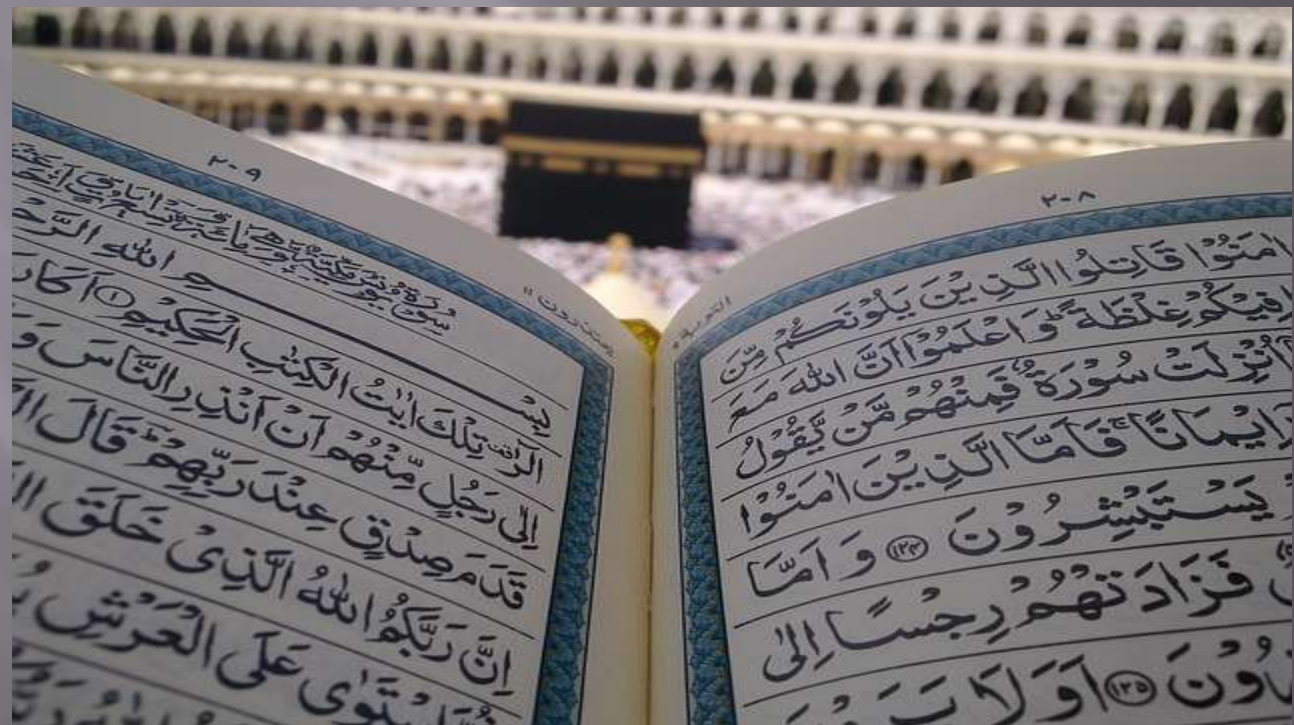 ٢٠٨
التوبة ٩
اٰمَنُوۡا قَاتِلُوا الَّذِيۡنَ يَلُوۡنَكُمۡ مِّنَ
فِيۡكُمۡ غِلۡظَةً ؕ وَاعۡلَمُوۡۤا اَنَّ اللّٰهَ مَعَ
اُنۡزِلَتۡ سُوۡرَةٌ فَمِنۡهُمۡ مَّنۡ يَّقُوۡلُ
اِيۡمَانًا ۚ فَاَمَّا الَّذِيۡنَ اٰمَنُوۡا
يَسۡتَبۡشِرُوۡنَ ﴿۱۲۴﴾ وَاَمَّا
فَزَادَتۡهُمۡ رِجۡسًا اِلٰى
﴿۱۲۵﴾ اَوَلَا
٢٠٩
يعتذرون ١١
سُوۡرَةُ
بِسۡمِ اللّٰهِ
الٓرٰ تِلۡكَ اٰيٰتُ الۡكِتٰبِ الۡحَكِيۡمِ ﴿۱﴾ اَكَانَ
اِلٰى رَجُلٍ مِّنۡهُمۡ اَنۡ اَنۡذِرِ النَّاسَ وَ
قَدَمَ صِدۡقٍ عِنۡدَ رَبِّهِمۡ ؕ قَالَ
اِنَّ رَبَّكُمُ اللّٰهُ الَّذِىۡ خَلَقَ
اسۡتَوٰى عَلَى الۡعَرۡشِ